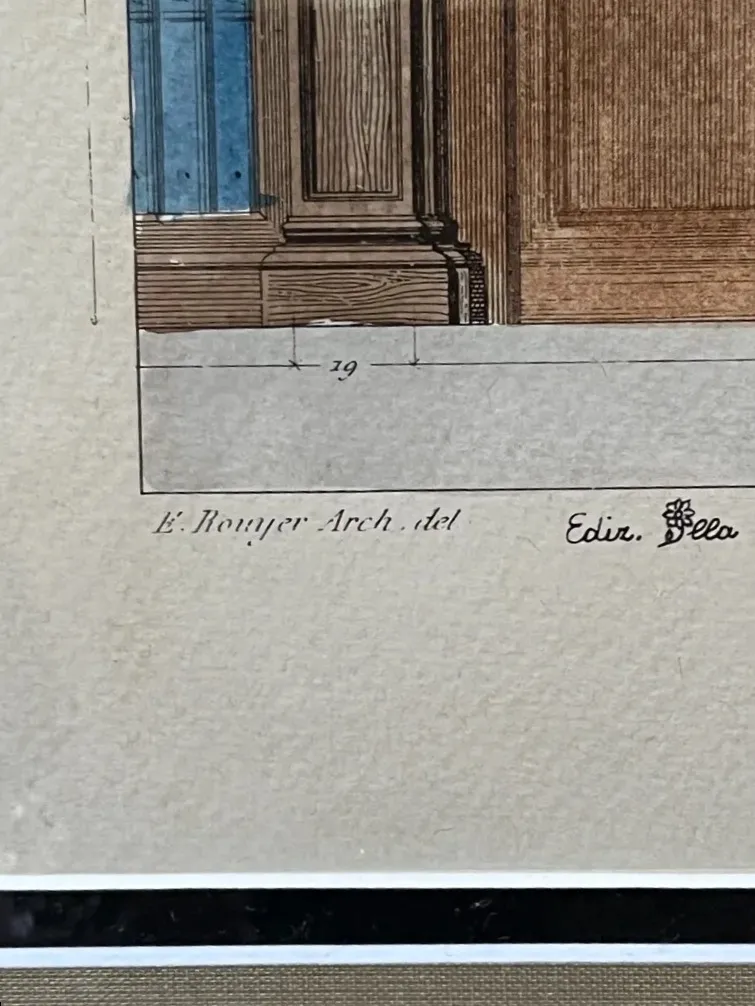 19
E. Rouyer Arch. del
Ediz. Illa